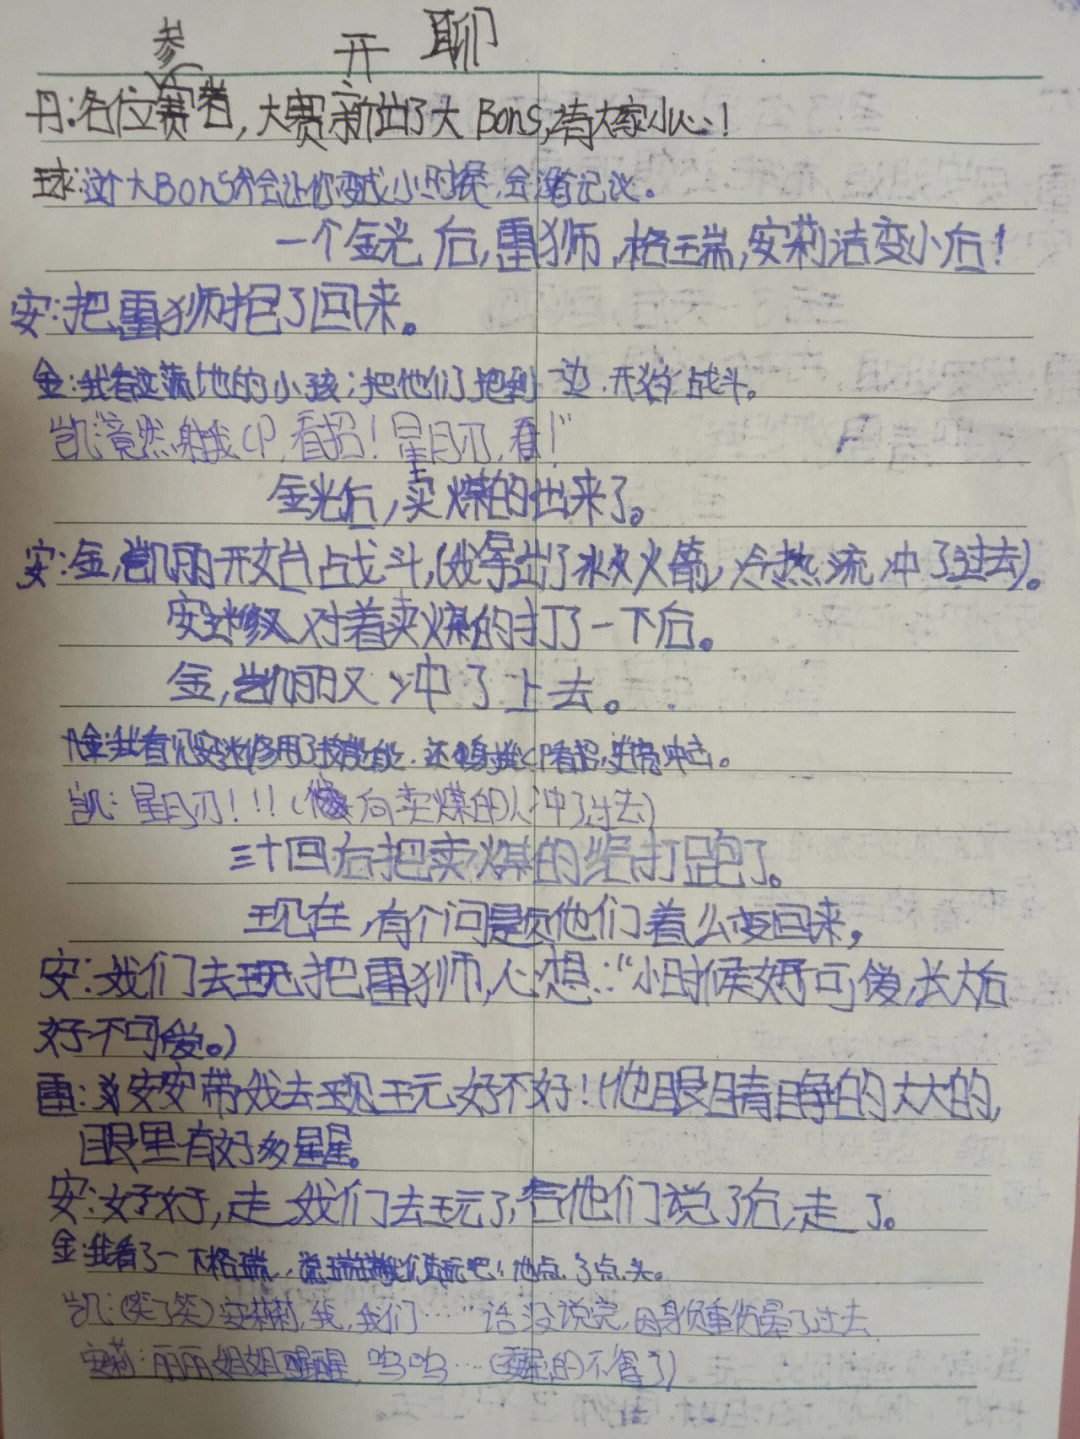 开聊
丹:各位参赛者,大赛新出了大Bons,请大家小心!
球:这个大Bons会让你变成小时候,会没有记议。
一个金光后,雷狮,格瑞,安莉洁变小后!
安:把雷狮抱了回来。
金:我看这满地的小孩;把他们把到一边,开始战斗。
凯:"竟然射我CP,看招!星月刃,看!"
金光后,卖煤的出来了。
安:金,凯丽开始战斗,(我拿出了冰火箭,冷热流冲了过去)。
安迷修又对着卖煤的打了一下后。
金,凯丽又冲了上去。
金:我看见安迷修用了技能,还射我CP看招,冲击。
凯:星月刃!!!(向卖煤的人冲了过去)
三十回后把卖煤的给打跑了。
现在,有个问题他们着么变回来,
安:我们去玩把雷狮,心想:"小时候好可爱,长大后
好不可爱。)
雷:安安带我去玩玩好不好!(他眼睛睁的大大的,
眼里有好多星星。
安:好好,走我们去玩了,告他们说了后,走了。
金:我看了一下格瑞,说瑞我们去玩吧!他点了点头。
凯:(笑了笑)安莉,我,我们……"话没说完,因身负重伤晕了过去
安莉:丽丽姐姐醒醒,呜呜…(哭的不得了)